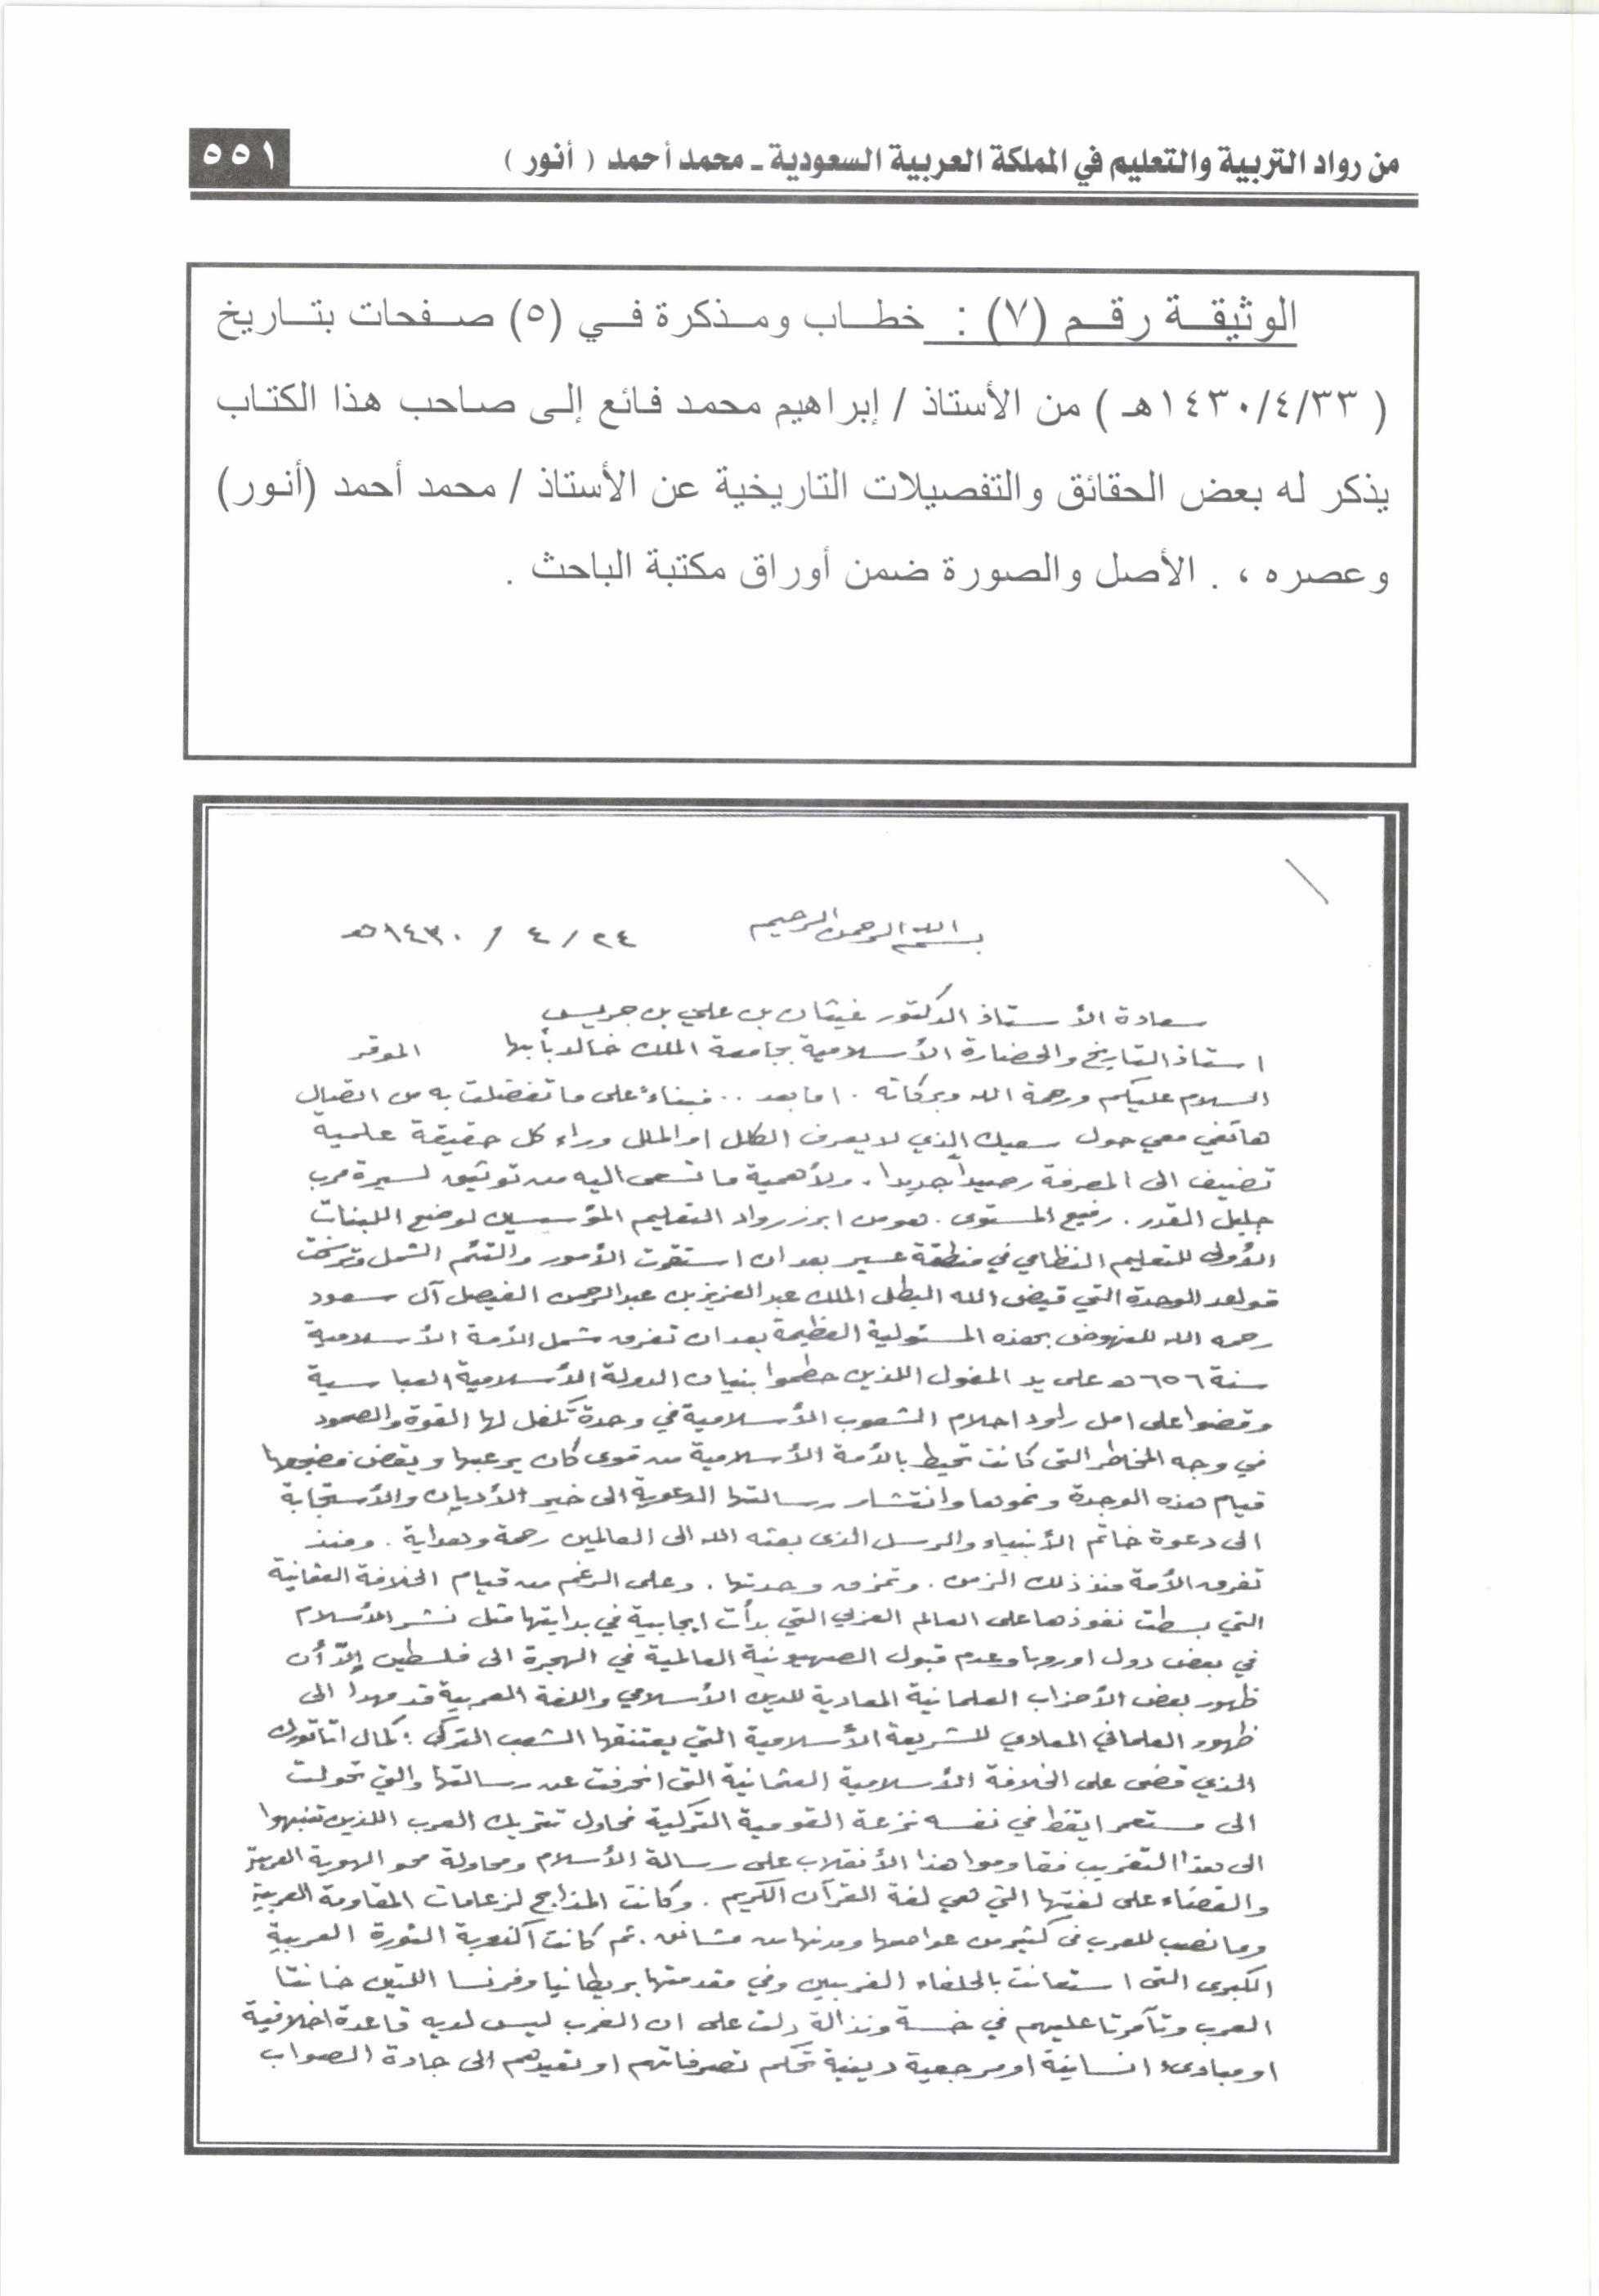 من رواد التربية والتعليم في المملكة العربية السعودية ـ محمد أحمد ( أنور )
٥٥١
الوثيقة رقم (٧) : خطاب ومذكرة في (٥) صفحات بتاريخ
( ١٤٣٠/٤/٣٣هـ ) من الأستاذ / إبراهيم محمد فائع إلى صاحب هذا الكتاب
يذكر له بعض الحقائق والتفصيلات التاريخية عن الأستاذ / محمد أحمد (أنور)
وعصره ، . الأصل والصورة ضمن أوراق مكتبة الباحث .
بسم الله الرحمن الرحيم
٢٤ / ٤ / ١٤٣٠هـ
سعادة الأستاذ الدكتور غيثان بن علي بن جريس
استاذ التاريخ والحضارة الأسلامية بجامعة الملك خالد بأبها الموقر
السلام عليكم ورحمة الله وبركاته . اما بعد .. فبناءً على ما تفضلت به من اتصال
هاتفي معي حول سعيك الذي لا يعرف الكلل او الملل وراء كل حقيقة علمية
تضيف الى المعرفة رصيداً جديدا . ولأهمية ما تسعى اليه من توثيق لسيرة مرب
جليل القدر . رفيع المستوى . هو من ابرز رواد التعليم المؤسسين لوضع اللبنات
الأولى للتعليم النظامي في منطقة عسير بعد ان استقرت الأمور والتئم الشمل وترسخت
قواعد الوحدة التي قيض الله البطل الملك عبد العزيز بن عبد الرحمن الفيصل آل سعود
رحمه الله للنهوض بهذه المسئولية العظيمة بعد ان تفرق شمل الأمة الأسلامية
سنة ٦٥٦هـ على يد المغول اللذين حطموا بنيان الدولة الأسلامية العباسية
وقضوا على امل راود احلام الشعوب الأسلامية في وحدة تكفل لها القوة والصمود
في وجه المخاطر التى كانت تحيط بالأمة الأسلامية من قوى كان يرعبها ويقض مضجعها
قيام هذه الوحدة ونموها وانتشار رسالتها الدعوية الى خير الأديان والأستجابة
الى دعوة خاتم الأنبياء والرسل الذى بعثه الله الى العالمين رحمة وهداية . ومنذ
تفرق الأمة منذ ذلك الزمن . وتمزق وحدتها . وعلى الرغم من قيام الخلافة العثمانية
التي بسطت نفوذها على العالم العربي التي بدأت ايجابية في بدايتها مثل نشر الأسلام
في بعض دول اوروبا وعدم قبول الصهيونية العالمية في الهجرة الى فلسطين إلاّ أن
ظهور بعض الأحزاب العلمانية المعادية للدين الأسلامي واللغة العربية قد مهدا الى
ظهور العلماني المعادي للشريعة الأسلامية التي يعتنقها الشعب التركى : كمال اتاتورك
الذي قضى على الخلافة الأسلامية العثمانية التى انحرفت عن رسالتها والتي تحولت
الى مستعمر ايقظ في نفسه نزعة القومية التركية فحاول تتريك العرب اللذين تنبهوا
الى هذا التغريب فقاوموا هذا الأنقلاب على رسالة الأسلام ومحاولة محو الهوية العربية
والقضاء على لغتها التي هي لغة القرآن الكريم . وكانت المذابح لزعامات المقاومة العربية
وما نصب للعرب فى كثير من عواصمها ومدنها من مشانق . ثم كانت اكذوبة الثورة العربية
الكبرى التى استعانت بالحلفاء الغربيين وفي مقدمتها بريطانيا وفرنسا اللتين خانتا
العرب وتآمرتا عليهم في خسة ونذالة دلت على ان الغرب ليس لديه قاعدة اخلاقية
او مبادىء انسانية او مرجعية دينية تحكم تصرفاتهم او تعيدهم الى جادة الصواب